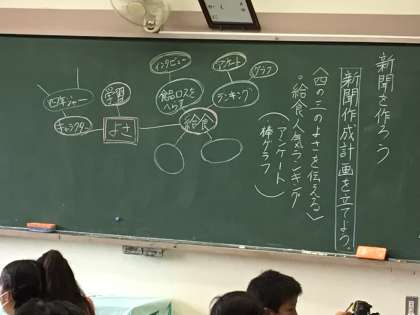 新聞を作ろう
新聞作成計画を立てよう。
〈四の二のよさを伝える〉
・給食人気ランキング
（アンケート
棒グラフ）
グラフ
アンケート
ランキング
インタビュー
食品ロスをへらす
給食
学習
よさ
キャラクター